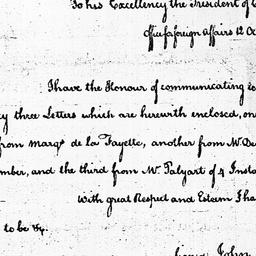 To his Excellency the President of
Office for foreign Affairs 12
I have the Honour of communicating
three Letters which are herewith enclosed, one
from Marqs de la Fayette, another from Mr Du
mber, and the third from Mr Palyart of 4 Inst
With great Respect and Esteem I ha
to be &c.
John